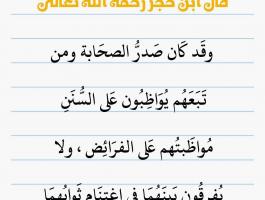 قال ابن حجر رحمه الله تعالى
وقَد كَان صَدرُ الصَحَابة ومن
تَبَعَهُم يُوَاظِبُون عَلى السُّنَنِ
مُواظَبتُهم عَلى الفرَائِض ، ولا
يُفرقُون بَينَهُمَا في اغتنَام ثَوابهمَا